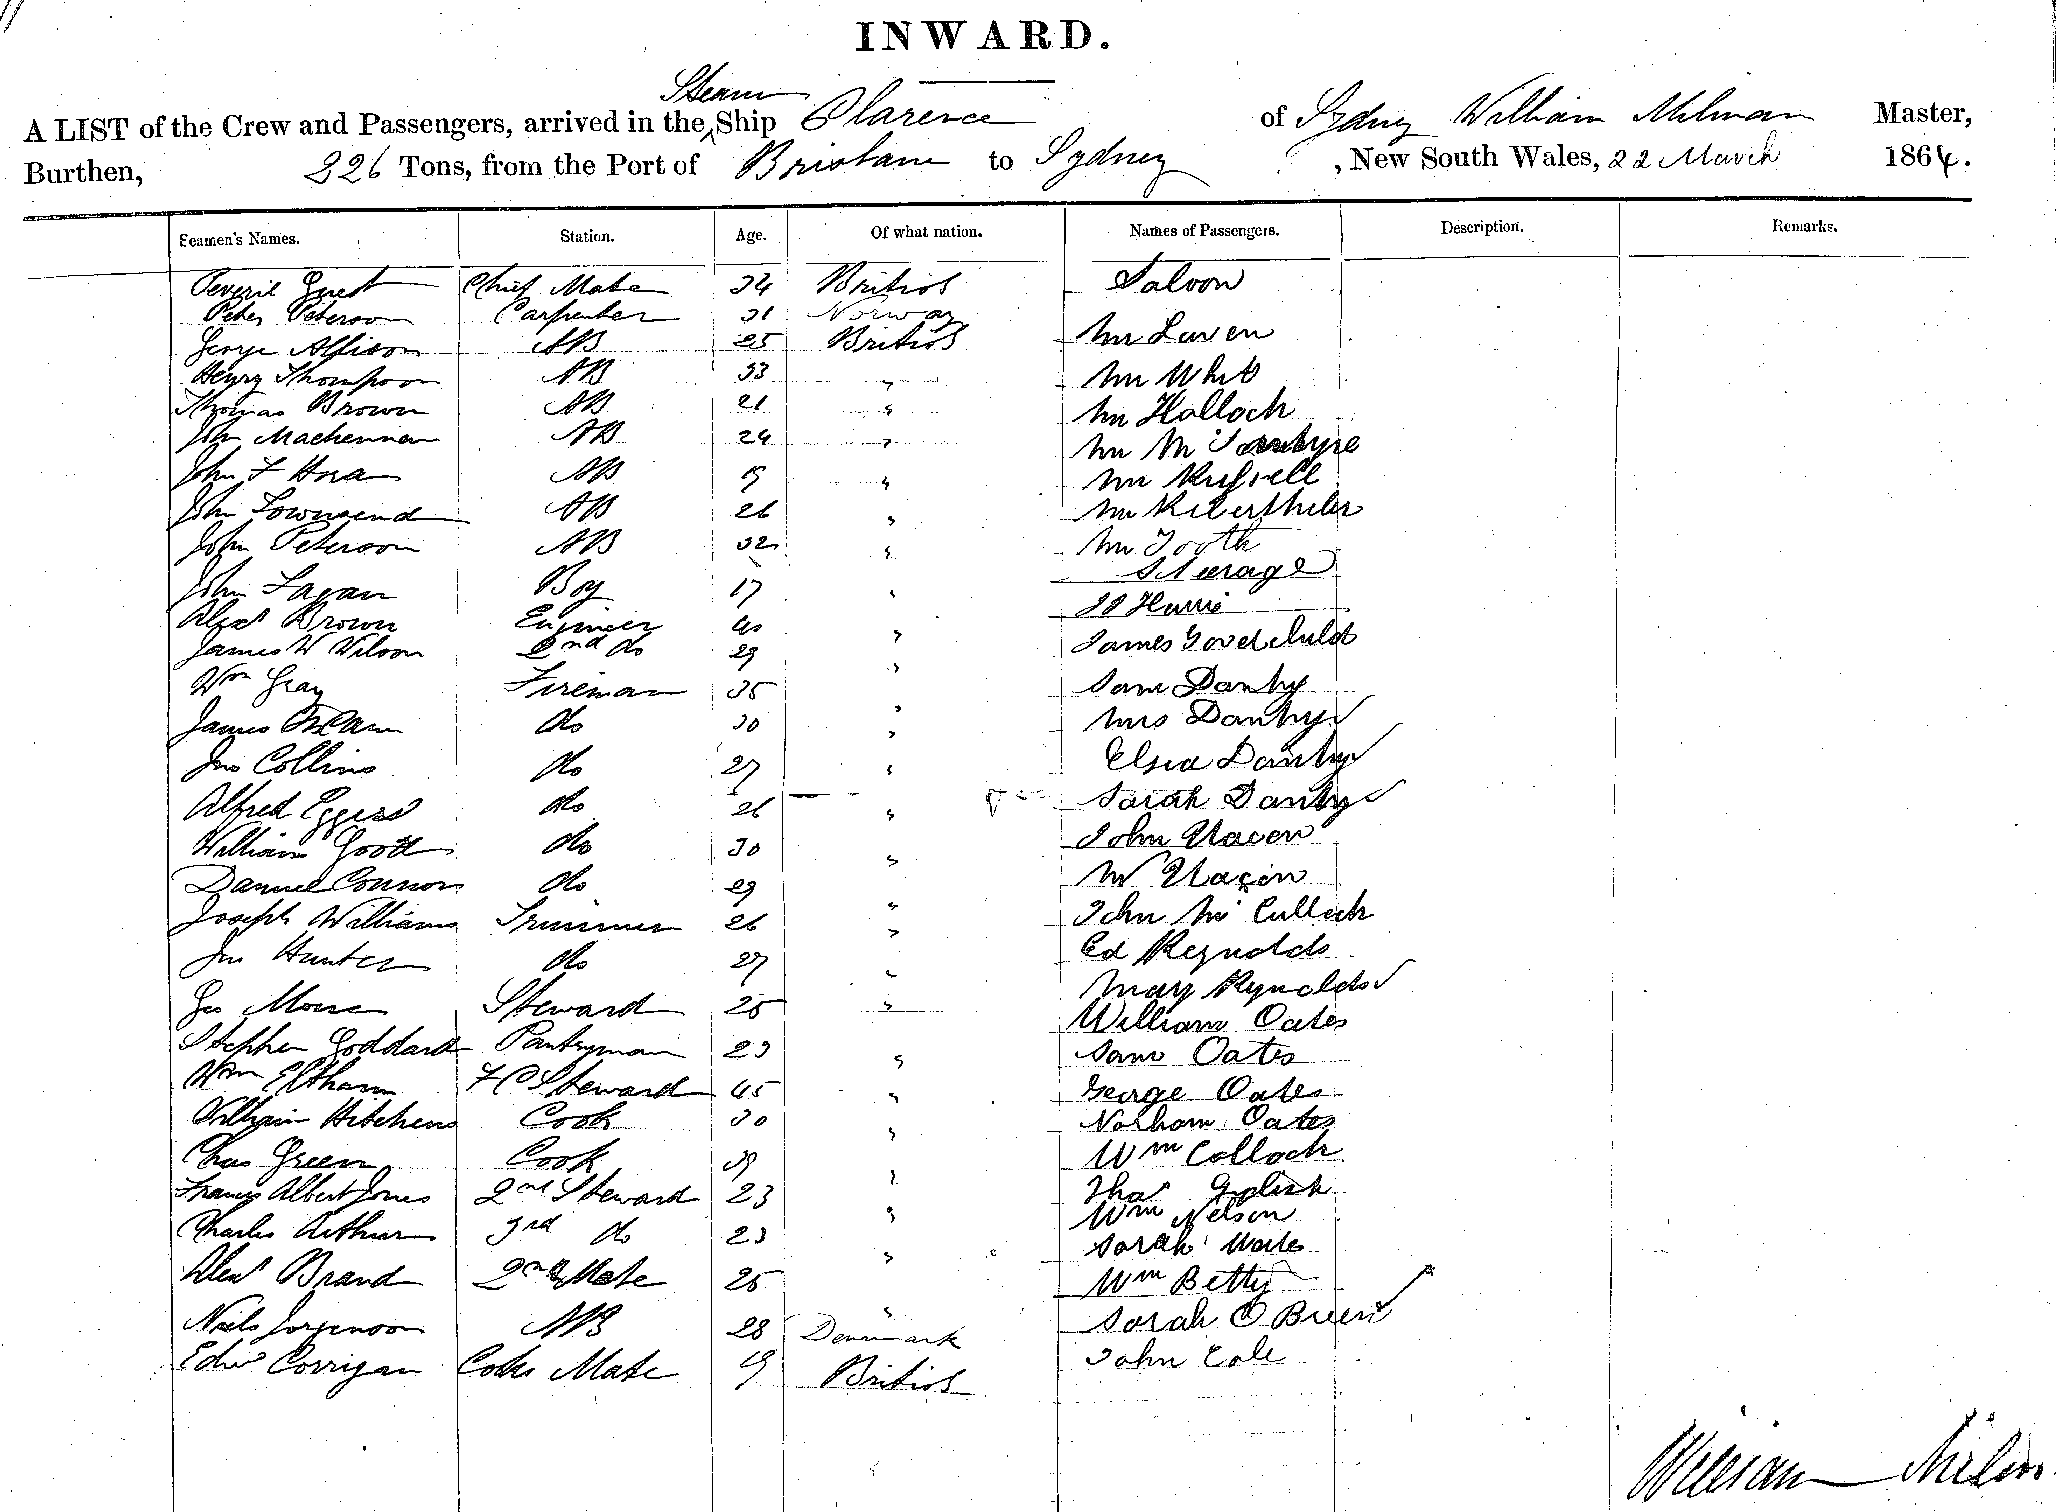 INWARD.
Steam
A LIST of the Crew and Passengers, arrived in the Ship Clarence of Sydney William Milman Master,
Burthen, 226 Tons, from the Port of Brisbane to Sydney, New South Wales, 22 March 1864.
Seamen's Names. Station. Age. Of what nation. Names of Passengers. Description. Remarks.
Peveril Guest Chief Mate 34 British Saloon
Peter Peterson Carpenter 31 Norway
George Allison AB 25 British Mr Laven
Henry Thompson AB 33 " Mr White
Thomas Brown AB 21 " Mr Holloch
John Mackennon AB 24 " Mr
John F AB 19 " Mr Russell
John Townsend AB 26 " Mr
John Peterson AB 32 " Mr Tooth
Steerage
John Fagan Boy 17 " Harris
Alexr Brown Engineer 40 " James Goodchild
James W Wilson 2nd do 29 "
Wm Gray Fireman 35 " Sam Danby
James do 30 " Mrs Danby
Jno Collins do 27 " Elsia Danby
Alfred Eggers do 26 " Sarah Danby
William Goott do 30 " John
Daniel Connor do 29 " W
Joseph Williams Trimmer 26 " John McCulloch
Jno Hunter do 27 " Ed Reynolds
Mary Reynolds
Geo Steward 25 " William Oates
Stephen Goddard Pantryman 23 " Sam Oates
Wm Eltham F C Steward 45 " George Oates
William Hitchens Cook 30 " Oates
Chas Green Cook 39 " Wm Colloch
Francis Albert Jones 2nd Steward 23 " Thos
Wm Nelson
Charles Arthur 3rd do 23 " Sarah
Alexr Brand 2nd Mate 25 " Wm Betty
Niels Jorgenson AB 28 Denmark Sarah O Brien
Edwd Corrigan Cooks Mate 19 British John Cole
William